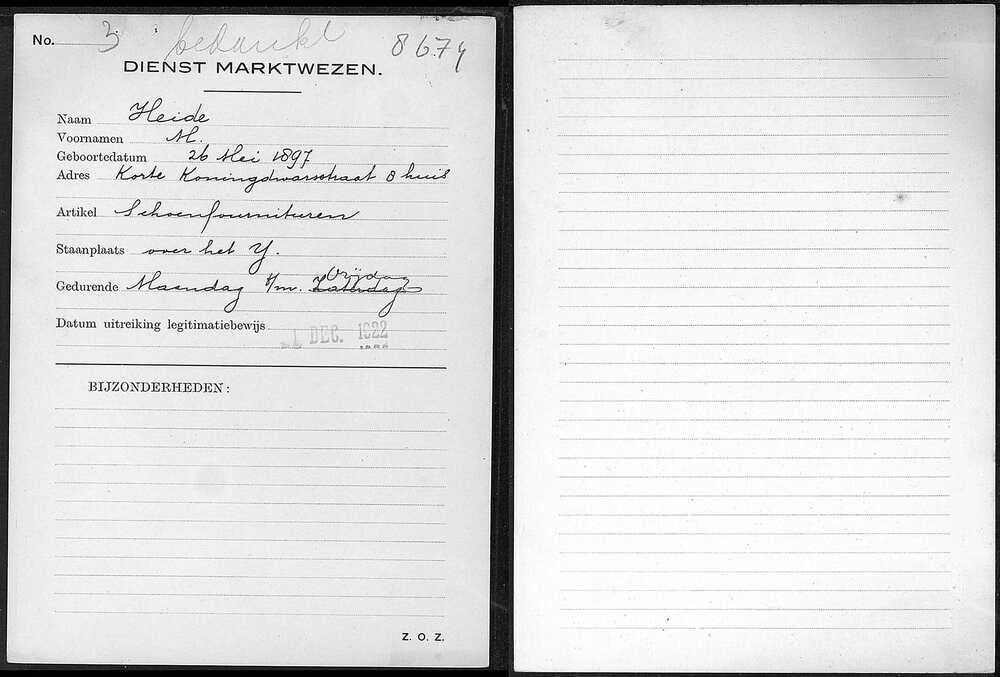 No. 3 bedankt 8674
DIENST MARKTWEZEN.
Naam Heide
Voornamen M.
Geboortedatum 26 Mei 1897
Adres Korte Koningdwarsstraat 8 huis
Artikel Schoenfournituren
Staanplaats over het Y.
Vrijdag
Gedurende Maandag t/m. Zaterdag
Datum uitreiking legitimatiebewijs
-1 DEC. 1922
BIJZONDERHEDEN:
Z. O. Z.